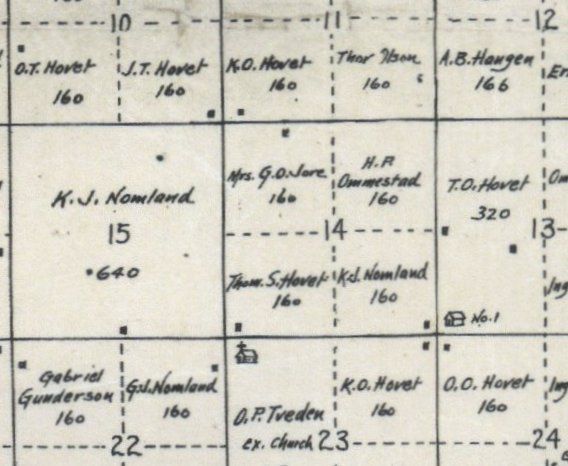 10
11
12
O.T. Hovet
160
J.T. Hovet
160
K.O. Hovet
160
Thor Ilson
160
A.B. Haugen
166
K. J. Nomland
15
640
Mrs. G.O. Jore
160
H.P.
Ommestad
160
T.O. Hovet
320
14
13
Thom. S. Hovet
160
K.J. Nomland
160
No. 1
Gabriel
Gunderson
160
G.J. Nomland
160
O.P. Tveden
ex. church
K.O. Hovet
160
O.O. Hovet
160
22
23
24